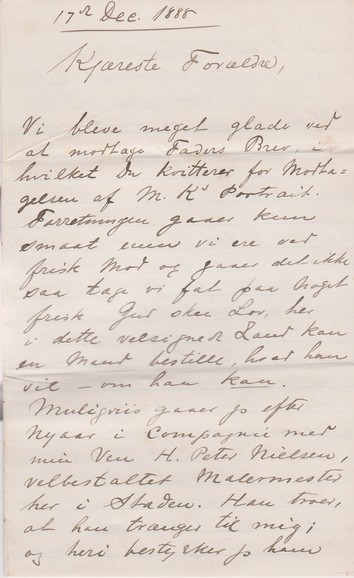 17de Dec. 1888
Kjæreste Forældre,
Vi bleve meget glade ved
at modtage Faders Brev, i
hvilket Du kvitterer for Modta-
gelsen af M. K's Portrait.
Forretningen gaaer kun
smaat men vi ere ved
frisk Mod og gaaer det ikke
saa tage vi fat paa Noget
frisk. Gud skee Lov, her
i dette velsignede Land kan
en Mand bestille, hvad han
vil – om han kan.
Muligviis gaaer jeg efter
Nyaar i Compagnie med
min Ven H. Peter Nielsen,
velbestaltet Malermester
her i Staden. Han troer,
at han trænger til mig;
og heri bestyrker jeg ham